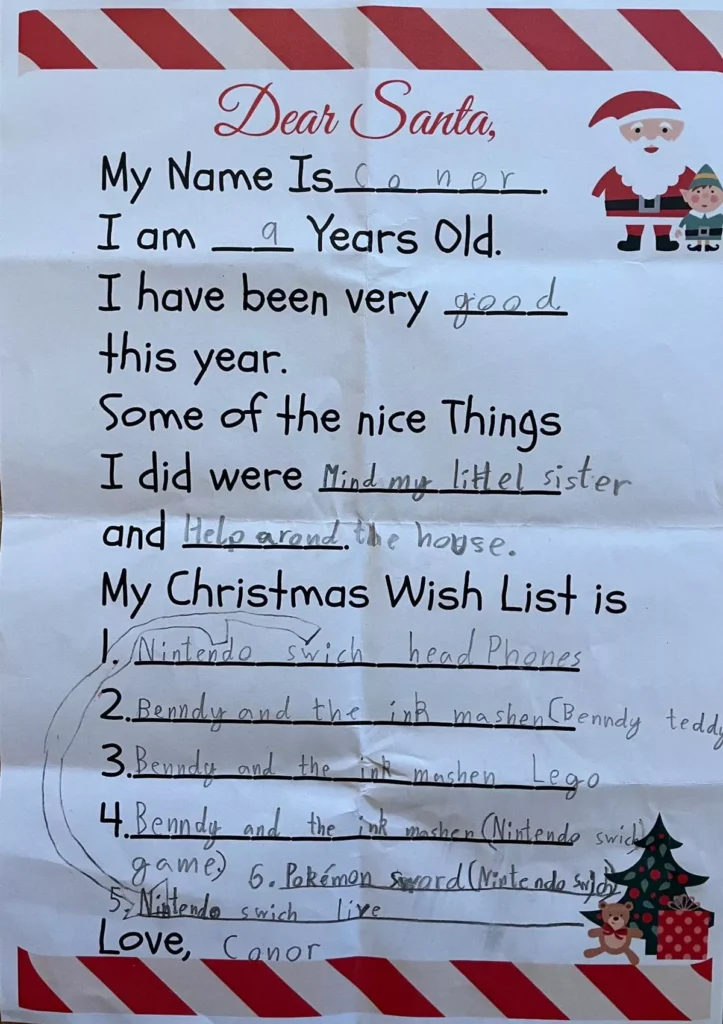 Dear Santa,
My Name Is Conor.
I am 9 Years Old.
I have been very good
this year.
Some of the nice Things
I did were Mind my littel sister
and Help arond. the house.
My Christmas Wish List is
1. Nintendo swich head Phones
2. Benndy and the ink mashen (Benndy teddy
3. Benndy and the ink mashen Lego
4. Benndy and the ink mashen (Nintendo swich
game) 6. Pokémon sword (Nintendo swich)
5, Nintendo swich live
Love, Conor